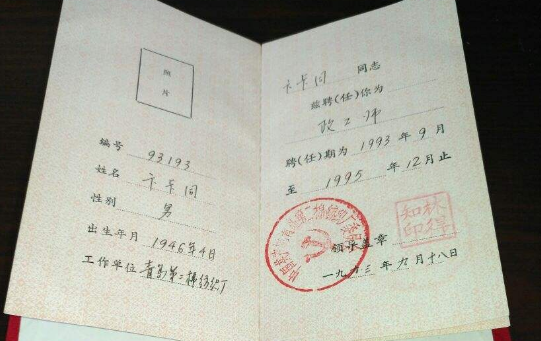 照
片
编号 93193
姓名 卞 同
性别 男
出生年月 1946年4日
工作单位 青岛第二棉纺织厂
卞 同 同志
兹聘(任)你为
政工师
聘(任)期为 1993 年 9 月
至 1995 年 12 月止
第二棉纺织厂委员会
林祥知印
领导盖章
一九九三 年 月十八日